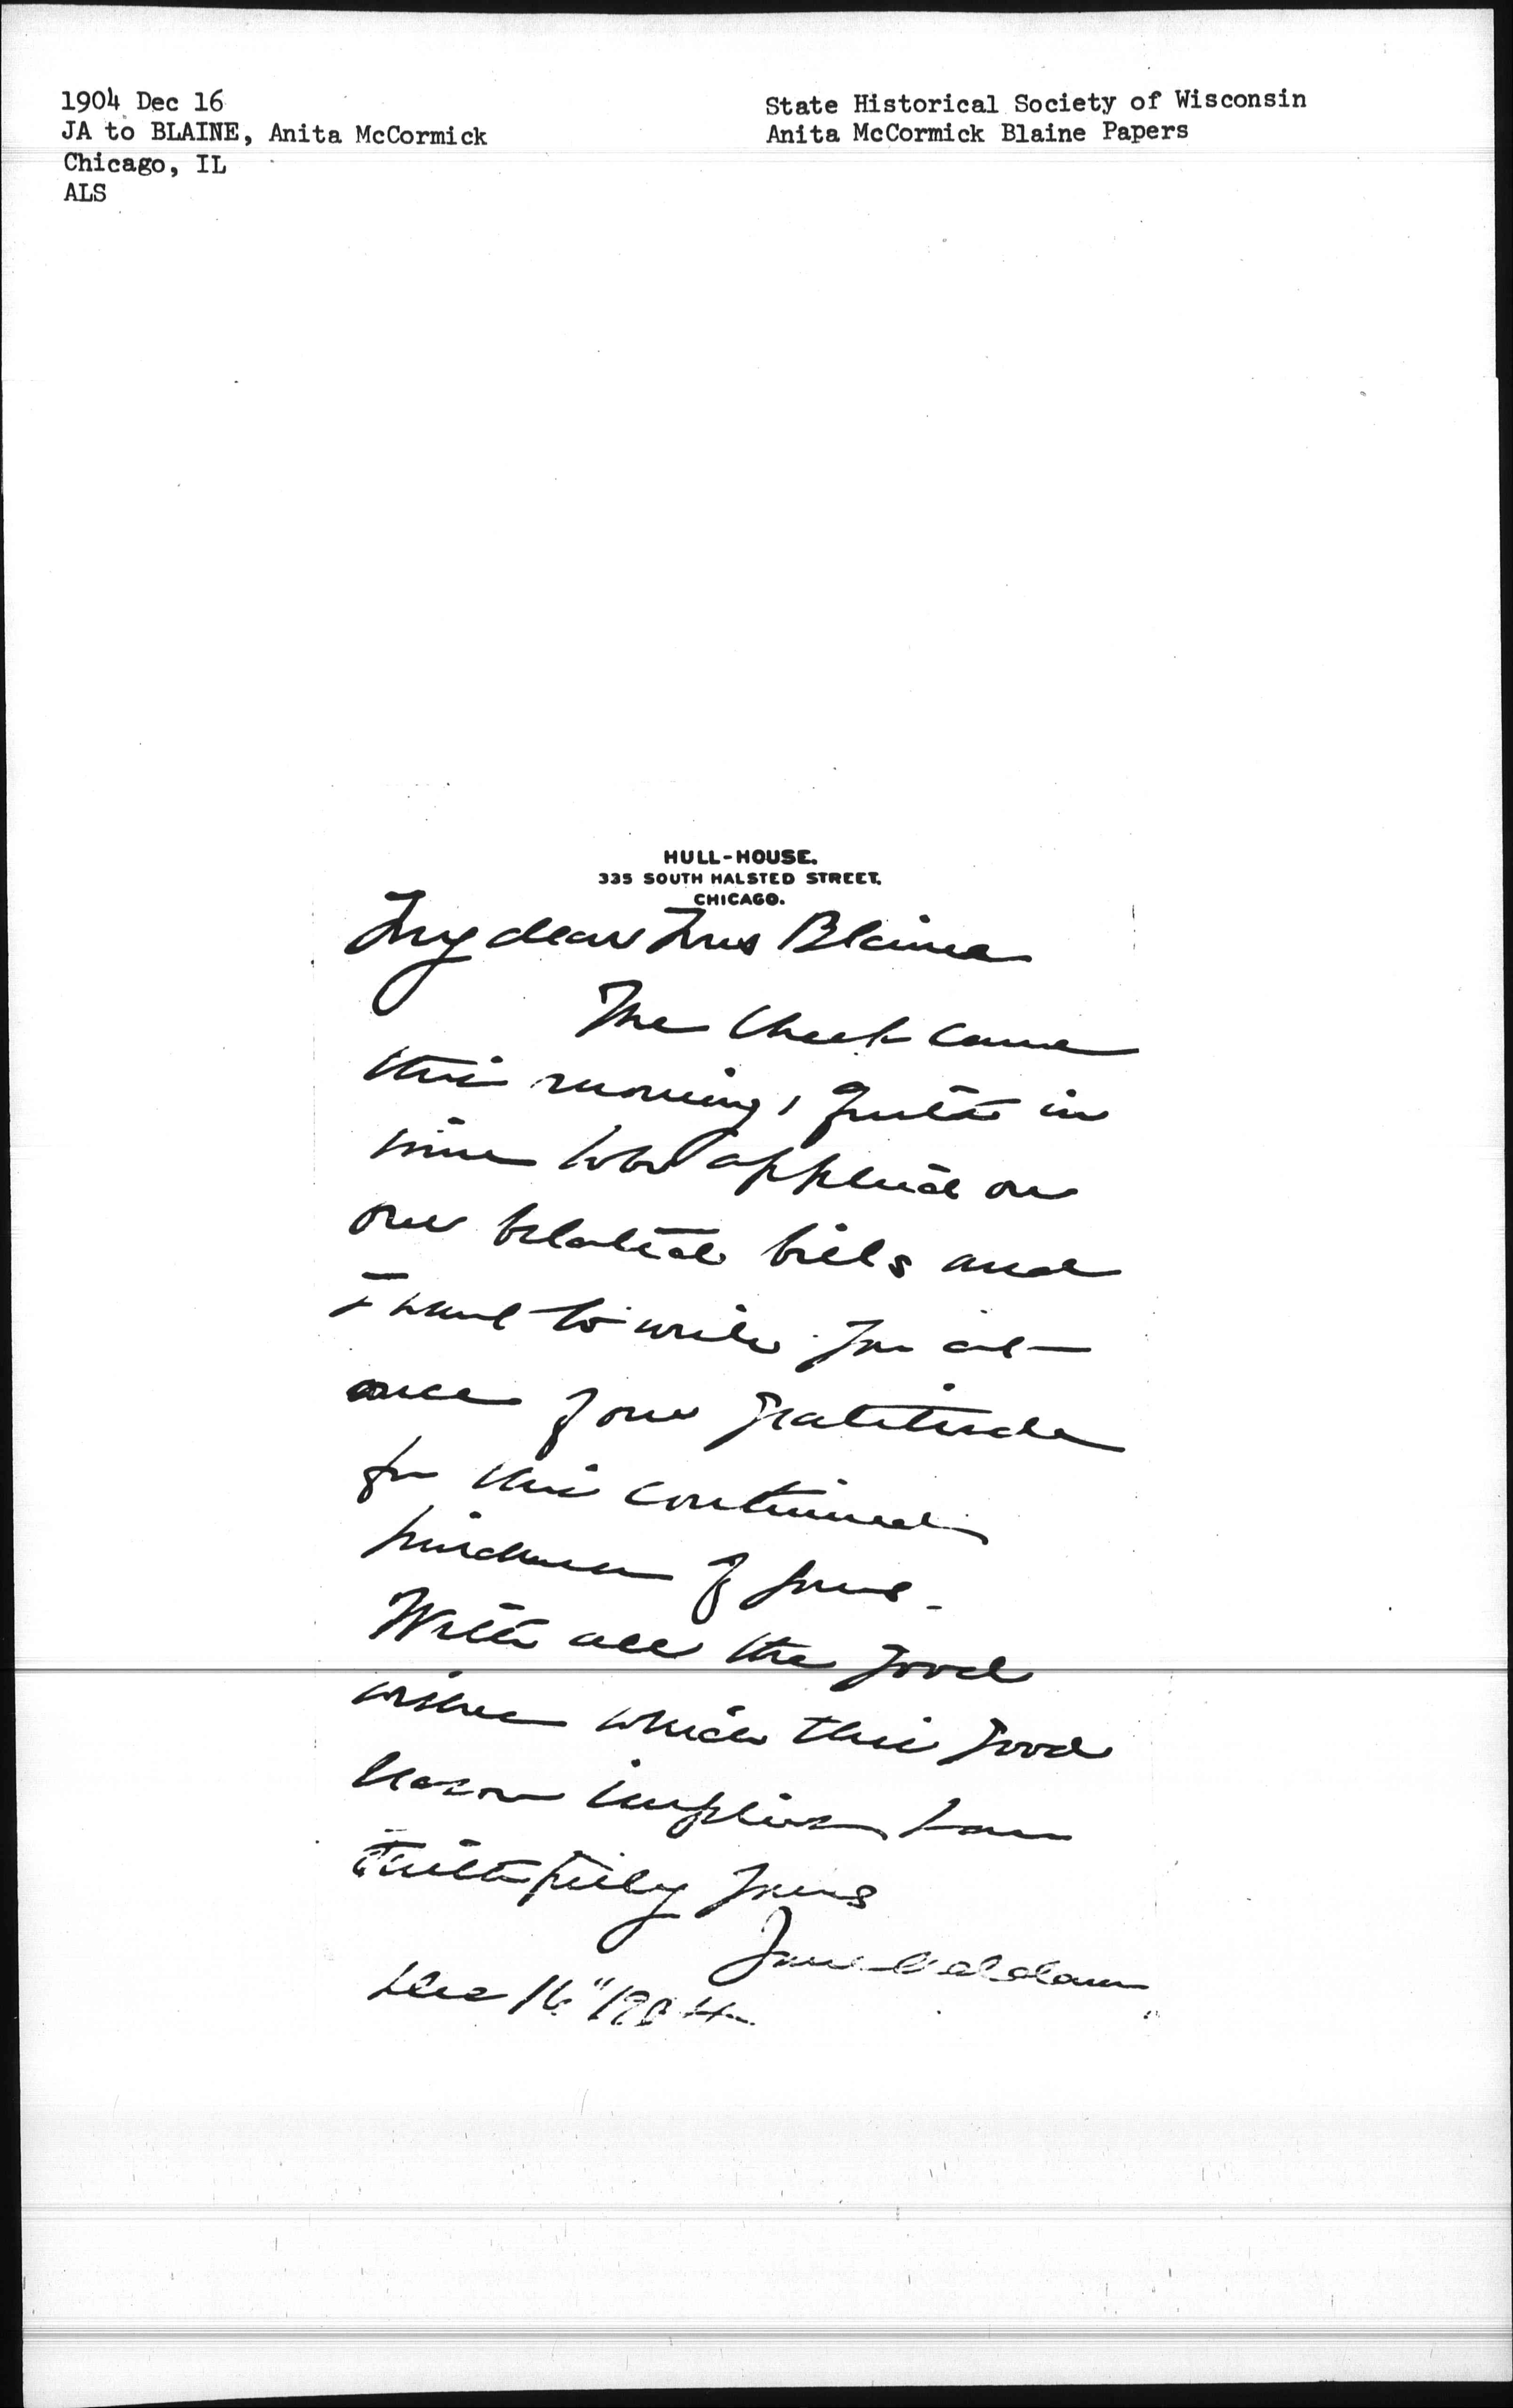 1904 Dec 16
JA to BLAINE, Anita McCormick
Chicago, IL
ALS
State Historical Society of Wisconsin
Anita McCormick Blaine Papers
HULL-HOUSE.
335 SOUTH HALSTED STREET.
CHICAGO.
My dear Mrs Blaine
The check came
this morning, quite in
time to be applied on
our belated bills and
I want to write you at
once of our gratitude
for this continued
kindness of yours.
With all the good
wishes which this good
season implies I am
faithfully yours
Jane Addams
Dec 16" 1904